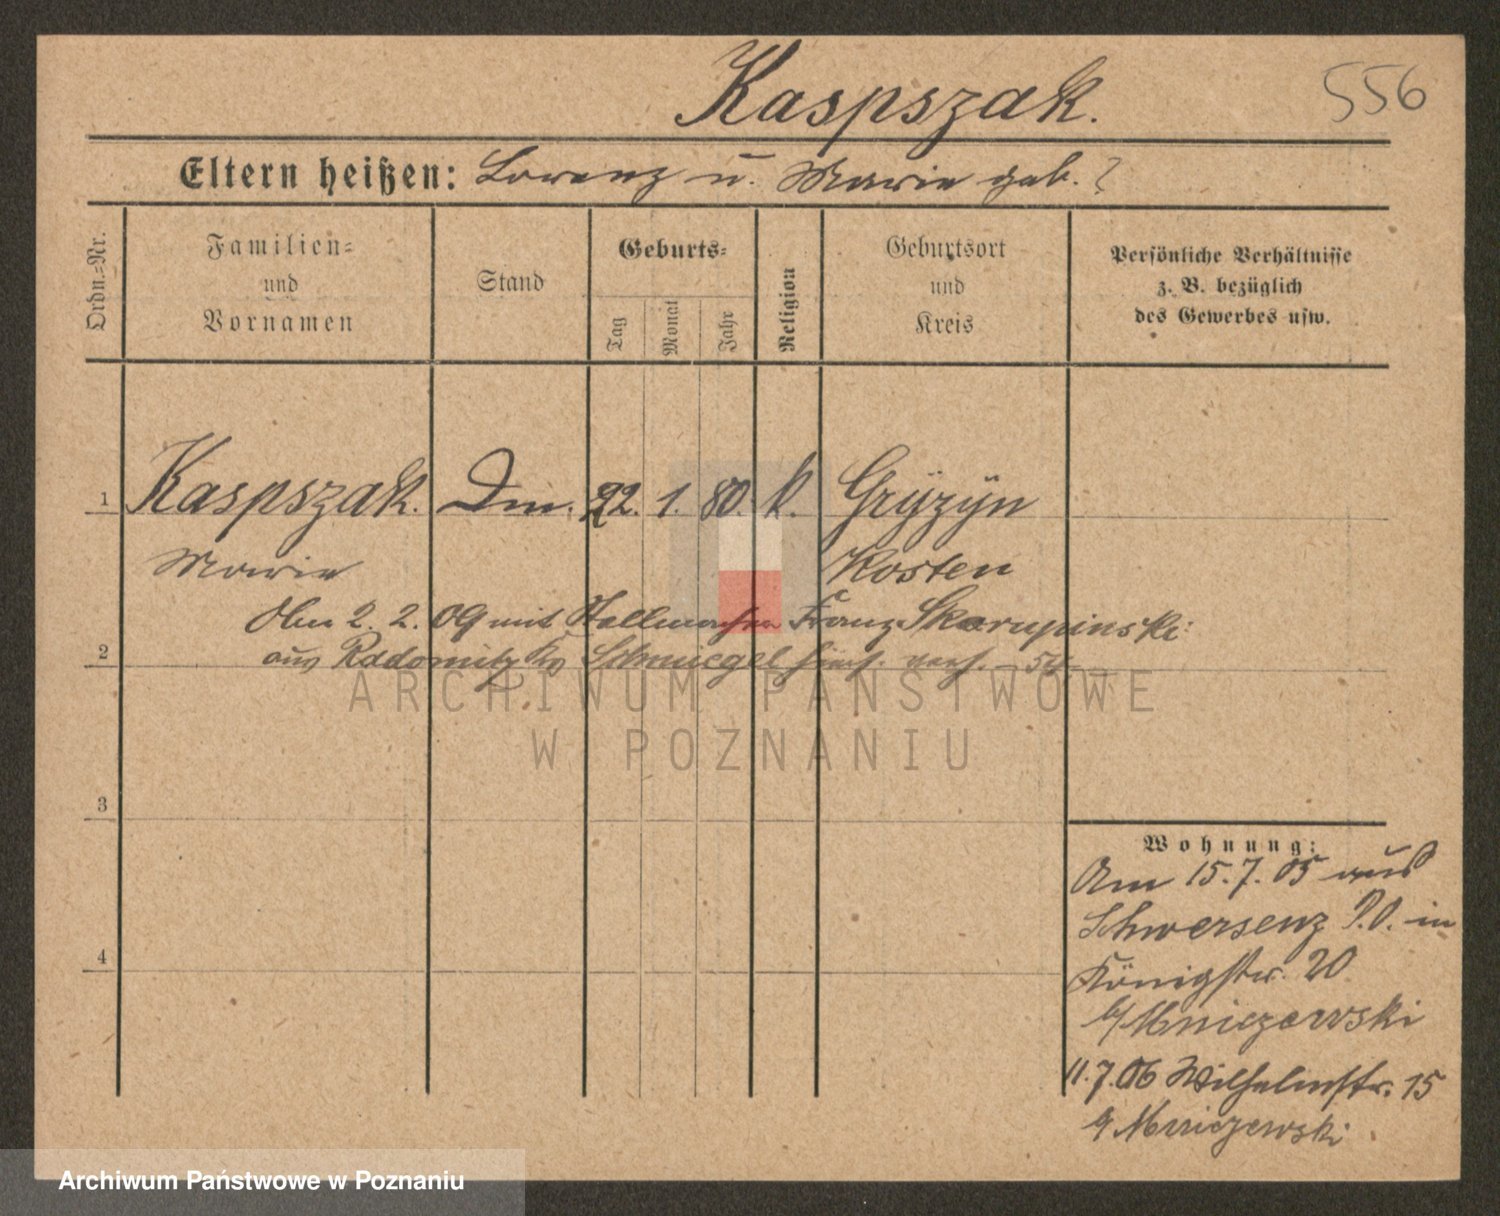 Kaspszak.
556
Eltern heißen: Lorenz u. Marie geb. ?
Ordn.=Nr.
Familien=
und
Vornamen
Stand
Geburts=
Tag
Monat
Jahr
Religion
Geburtsort
und
Kreis
Persönliche Verhältnisse
z. B. bezüglich
des Gewerbes usw.
1 Kaspszak. Din. 22. 1. 80. k. Gryzyn
Marie Kosten
2. 2. 09 mit Stellmacher Franz Skorupinski
2
aus Radomitz Kr. Schmiegel
3
4
Wohnung:
Am 15.7.05 aus
Schwersenz P.O. in
Königstr. 20
b/ Mniczewski
11.7.06 Wilhelmstr. 15
Mniczewski
ARCHIWUM PAŃSTWOWE
W POZNANIU
Archiwum Państwowe w Poznaniu